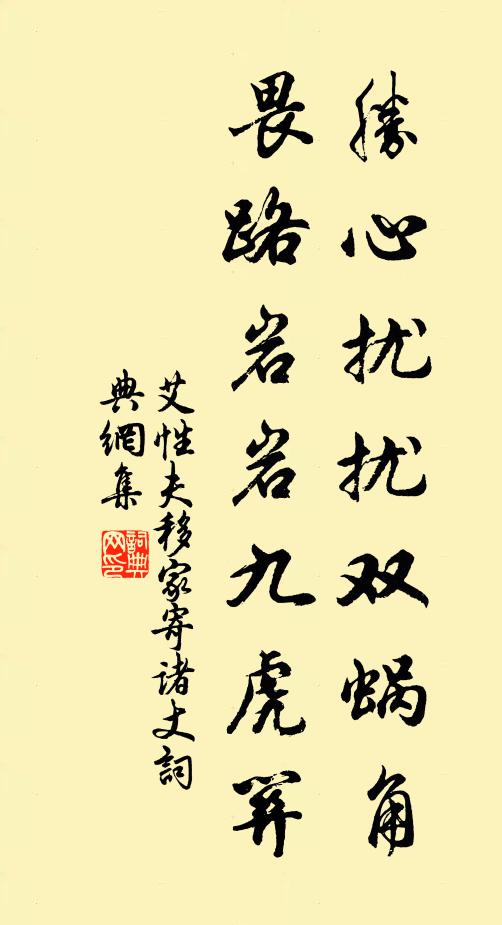 胜心扰扰双蜗角
畏路岩岩九虎关
艾性夫移家寄诸丈詞
典網集
詞典网印